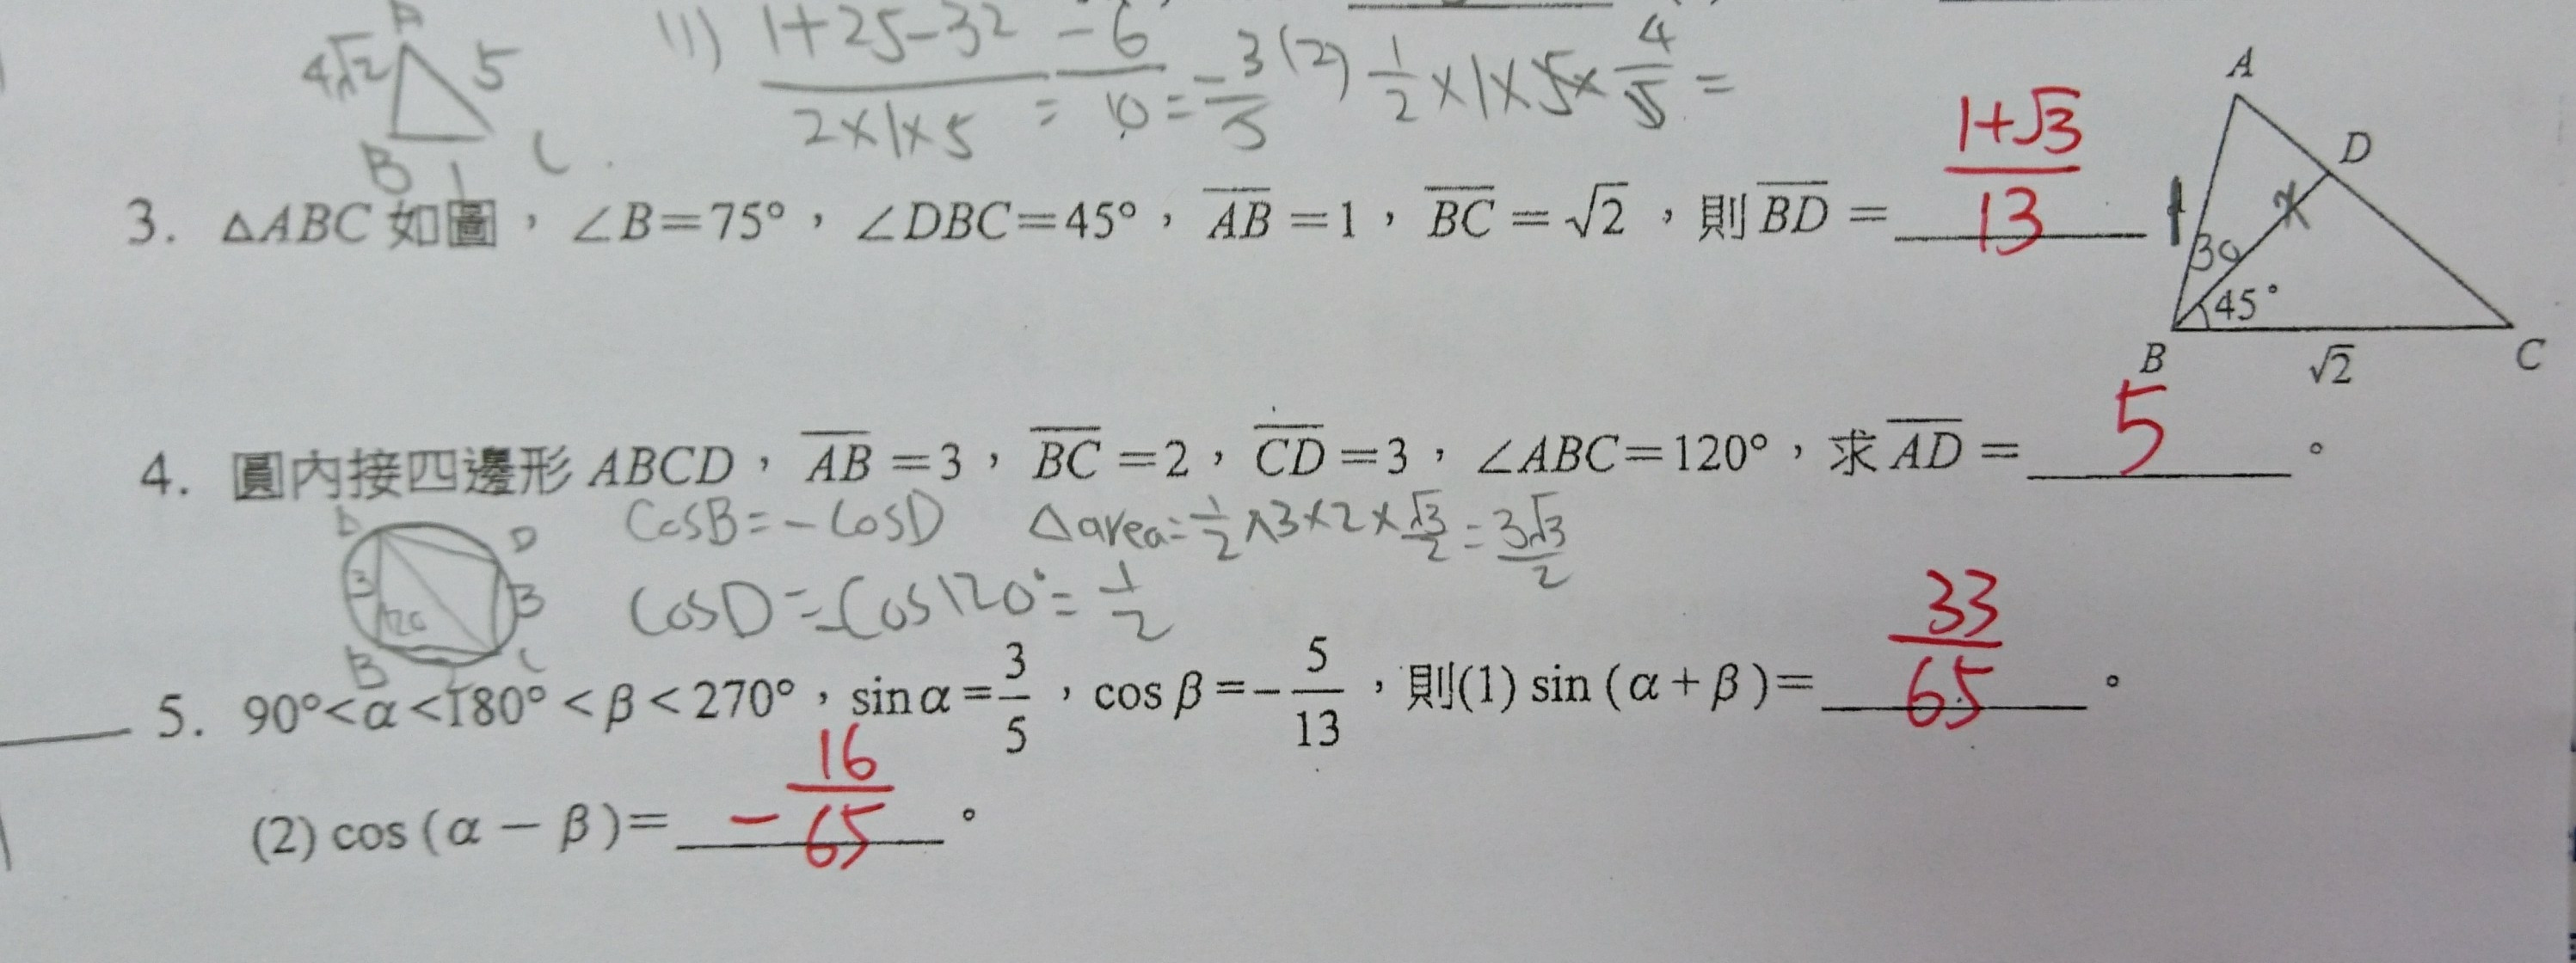 A
4√2 5
B 1 C
(1) (1+25-32)/(2×1×5) = -6/10 = -3/5 (2) 1/2×1×5×4/5 =
3. △ABC 如圖，∠B=75°，∠DBC=45°，AB=1，BC=√2，則BD= (1+√3)/13
A
D
1 x
30
45°
B √2 C
4. 圓內接四邊形 ABCD，AB=3，BC=2，CD=3，∠ABC=120°，求AD= 5 。
A D
3 3
120
B 2 C
cosB=-cosD △area=1/2×3×2×√3/2=3√3/2
cosD=-cos120°=1/2
5. 90°<α<180°<β<270°，sinα=3/5，cosβ=-5/13，則(1) sin(α+β)= 33/65 。
(2) cos(α-β)= -16/65 。